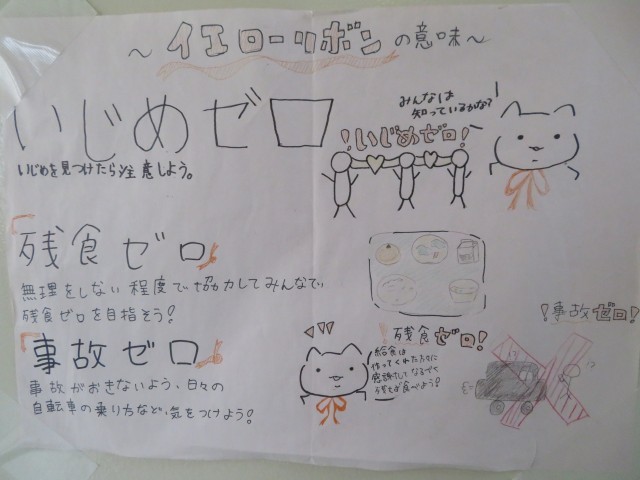 ～イエローリボンの意味～
いじめゼロ
いじめを見つけたら注意しよう。
みんなは
知っているかな？
！いじめゼロ！
「残食ゼロ
無理をしない程度で協力してみんなで
残食ゼロを目指そう！
「事故ゼロ
事故がおきないよう、日々の
自転車の乗り方など、気をつけよう！
残食ゼロ！
給食は
作ってくれた方々に
感謝してなるべく
残さず食べよう！
！事故ゼロ！